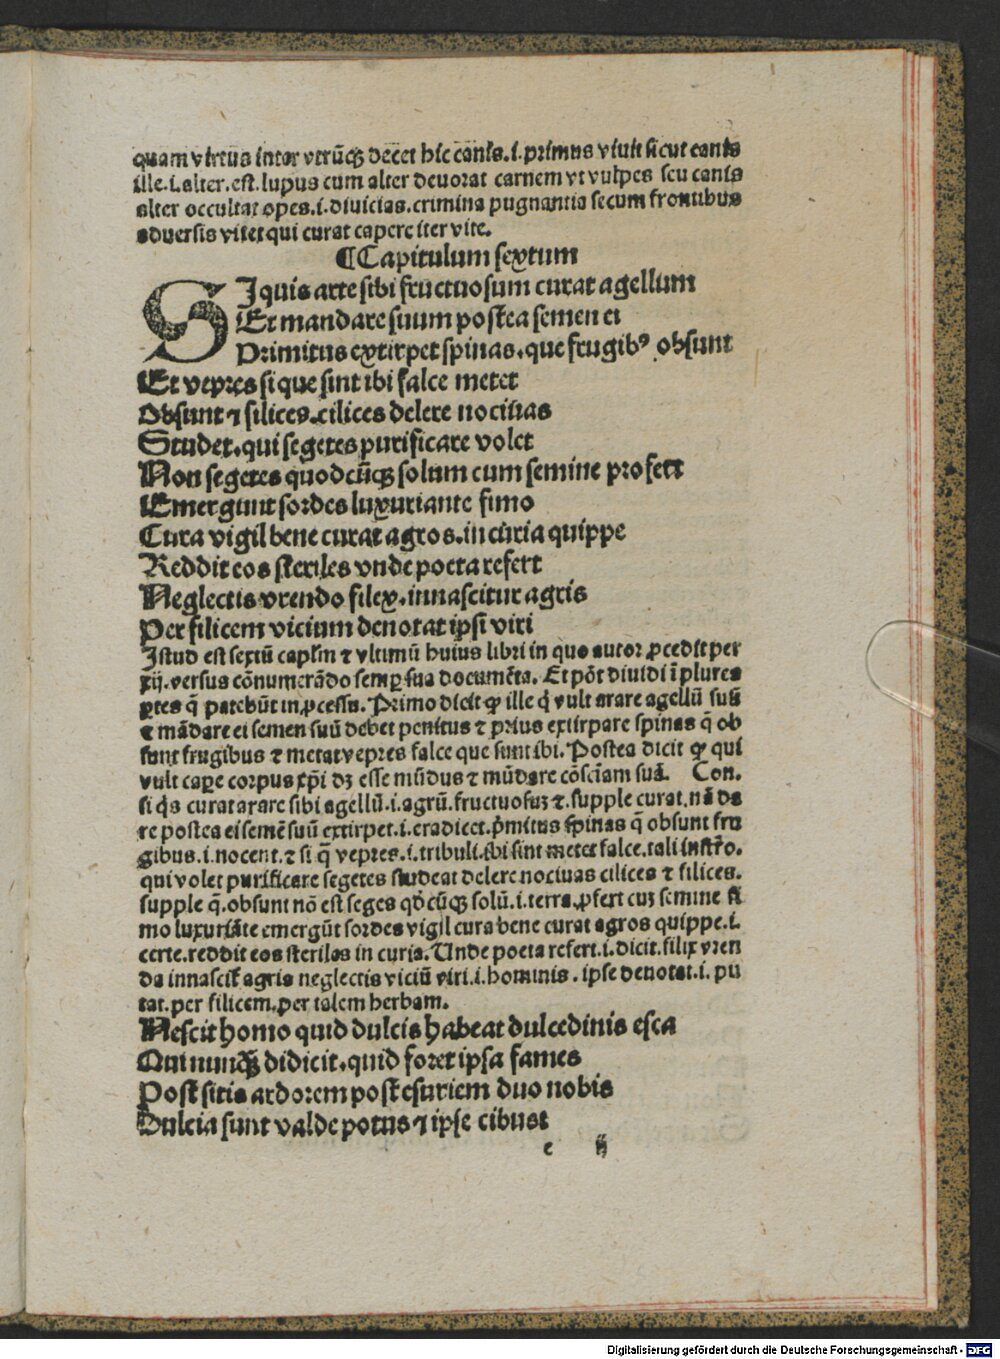 quam virtus inter vtrūqꝫ decet hic canis.i.primus viuit sicut canis
ille.i.alter.est.lupus cum alter deuorat carnem vt vulpes seu canis
alter occultat opes.i.diuicias.crimina pugnantia secum frontibus
aduersis vitet qui curat capere iter vite.
¶Capitulum sextum
SIquis arte sibi fructuosum curat agellum
Et mandare suum postea semen ei
Primitus extirpet spinas.que frugibꝰ obsunt
Et vepres si que sint ibi falce metet
Obsunt ⁊ silices.cilices delere nociuas
Studet.qui segetes purificare volet
Non segetes quodcūqꝫ solum cum semine profert
Emergunt sordes luxuriante fimo
Cura vigil bene curat agros.incuria quippe
Reddit eos steriles vnde poeta refert
Neglectis vrendo filex.innascitur agris
Per filicem vicium denotat ipsi viri
Istud est sextū caplm̄ ⁊ vltimū huius libri in quo autor ꝓcedit per
xij.versus cōnumerādo semꝑ sua documēta. Et pōt diuidi ī plures
ꝑtes q̄ patebūt in ꝓcessu. Primo dicit ꝙ ille q̇ vult arare agellū suū
⁊ mādare ei semen suū debet penitus ⁊ prius extirpare spinas q̄ ob
sunt frugibus ⁊ metat vepres falce que sunt ibi. Postea dicit ꝙ qui
vult caꝑe corpus xp̄i dꝫ esse mūdus ⁊ mūdare cōsciam̄ suā. Con.
si q̇s curat arare sibi agellū.i.agrū.fructuosuꝫ ⁊.supple curat.nā da
re postea ei semē suū extirpet.i.eradicet.pͥmitus spinas q̄ obsunt fru
gibus.i.nocent.⁊ si q̄ vepres.i.tribuli.ibi sint metet falce.tali instr̄o.
qui volet purificare segetes studeat delere nociuas cilices ⁊ filices.
supple q̄.obsunt nō est seges qd̄cūqꝫ solū.i.terra.ꝓfert cuꝫ semine fi
mo luxuriāte emergūt sordes vigil cura bene curat agros quippe.i.
certe.reddit eos steriles in curia. Unde poeta refert.i.dicit.filix vren
da innascit᷑ agris neglectis viciū viri.i.hominis. ipse denotat.i. pu
tat.per filicem.per talem herbam.
Nescit homo quid dulcis habeat dulcedinis esca
Qui nunqꝫ didicit.quid foret ipsa fames
Post sitis ardorem post esuriem duo nobis
Dulcia sunt valde potus ⁊ ipse cibust
e ij
Digitalisierung gefördert durch die Deutsche Forschungsgemeinschaft - DFG